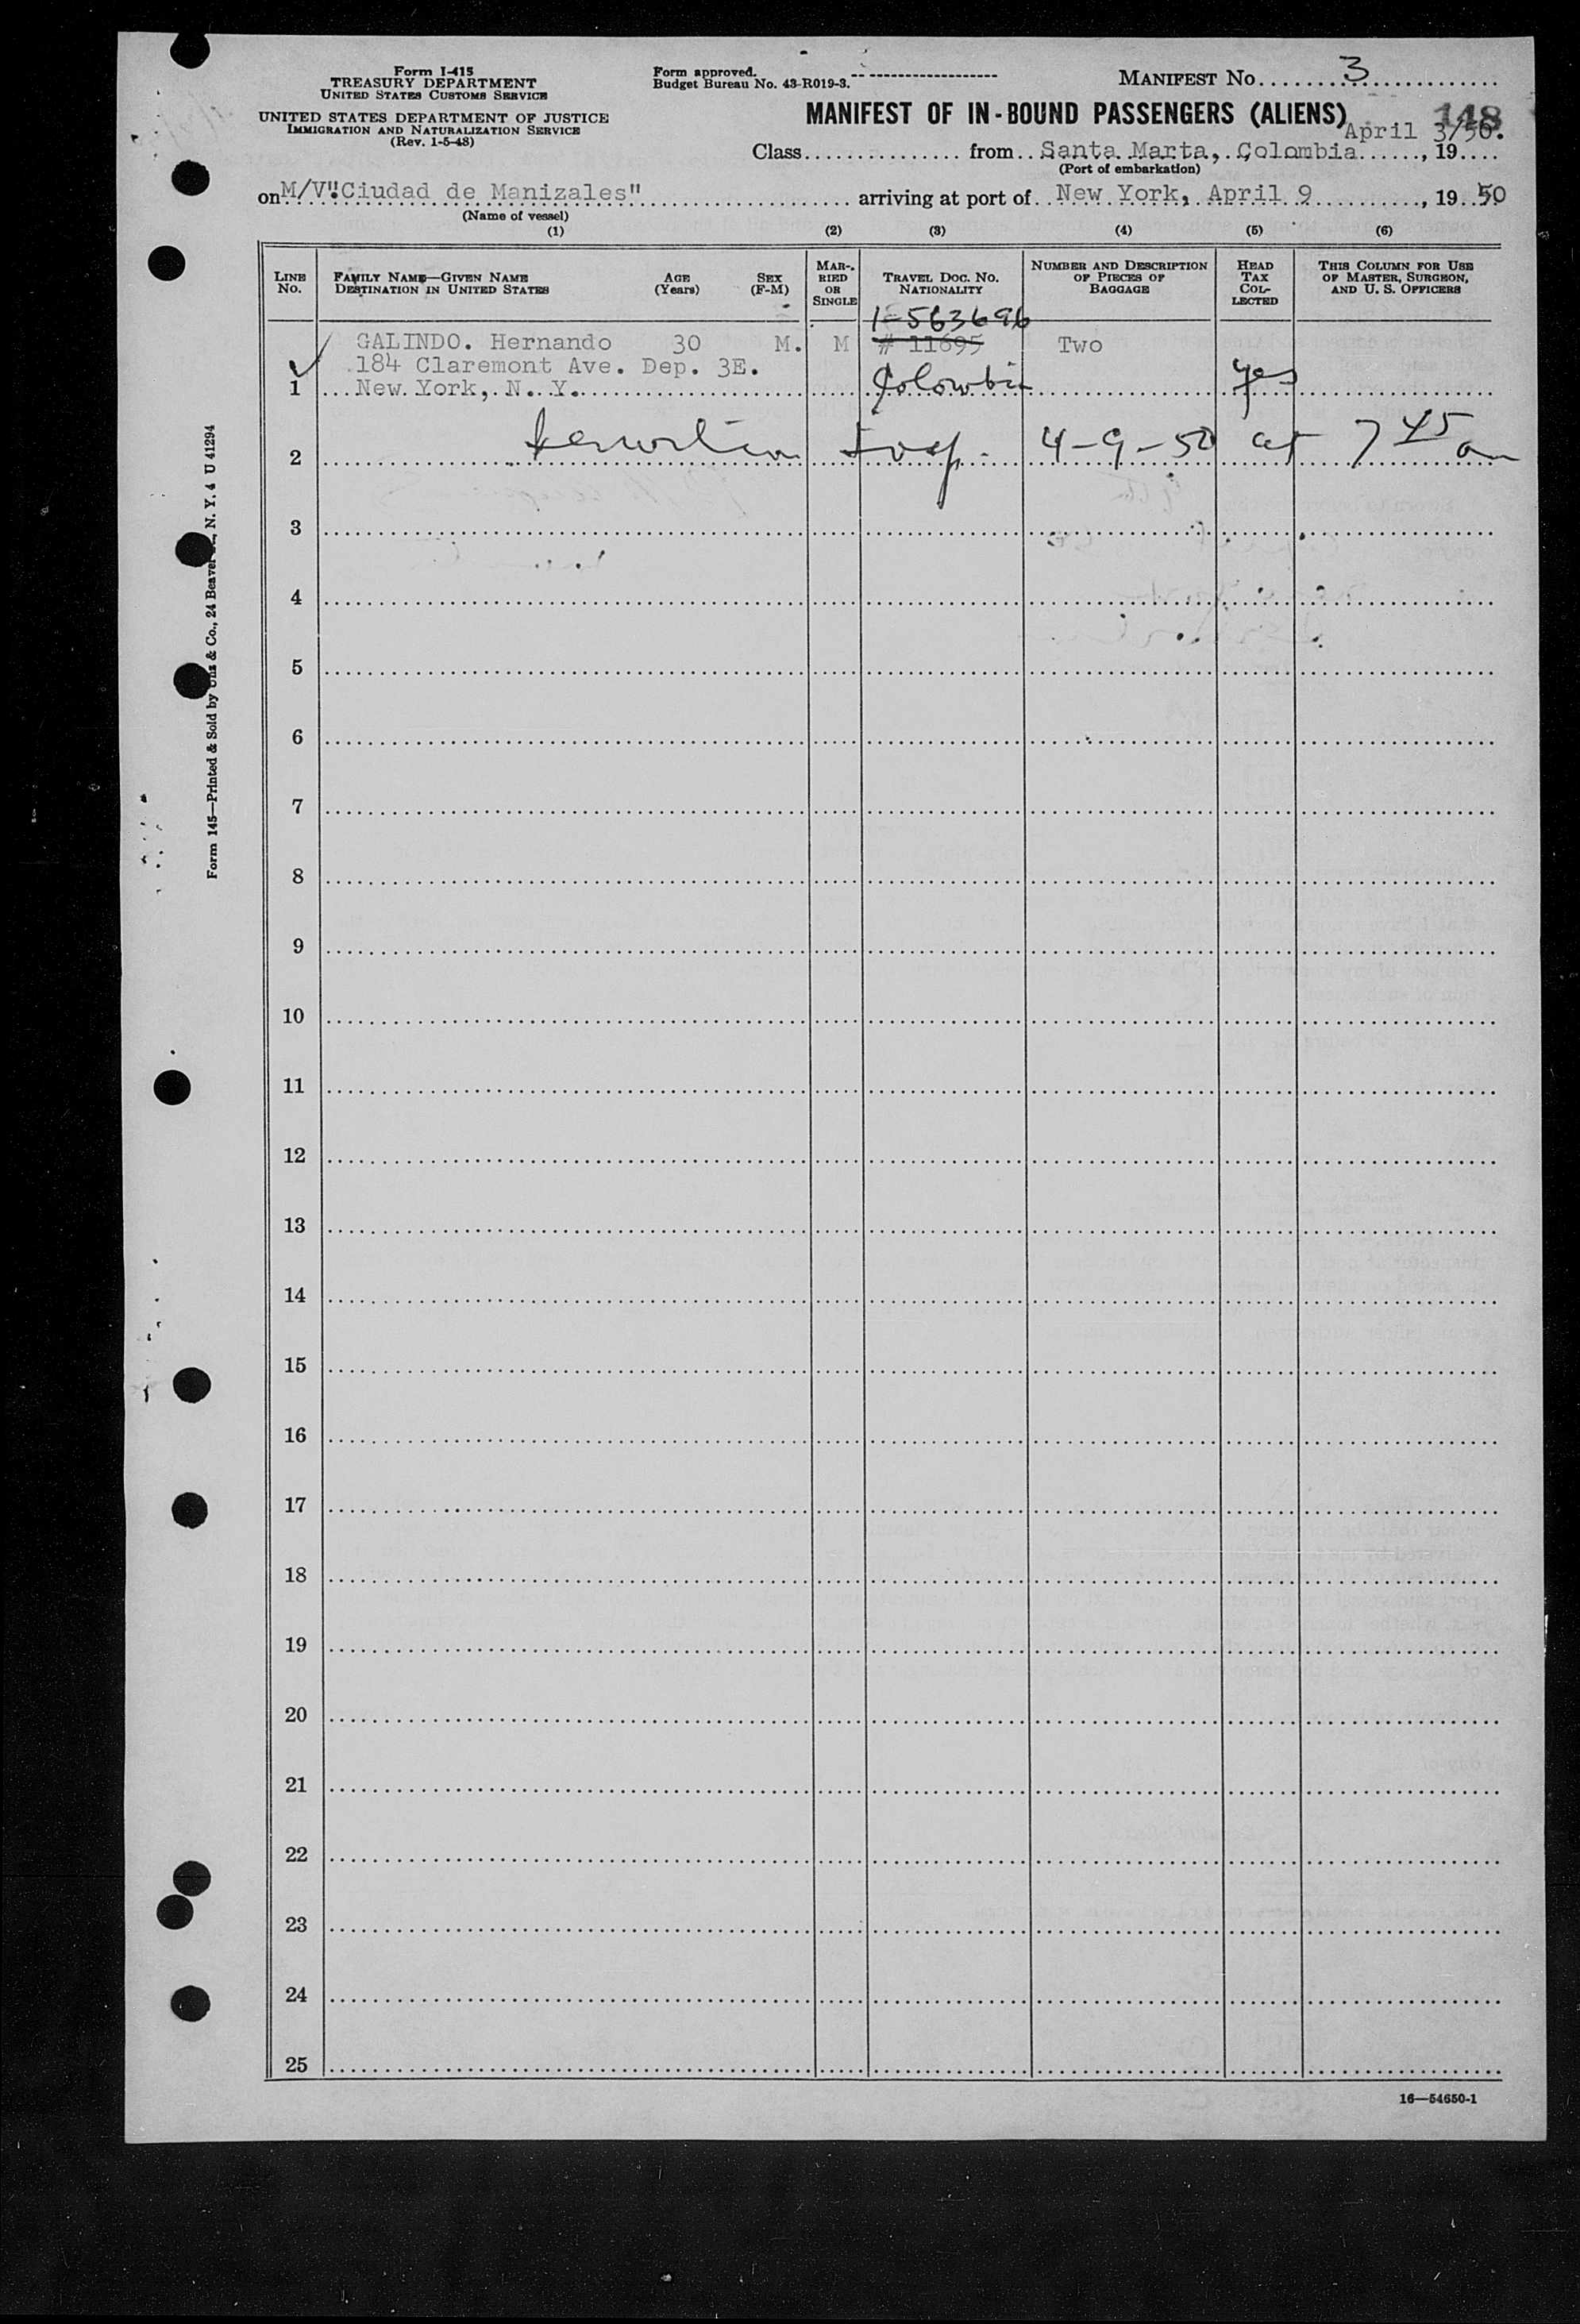 Form I-415
TREASURY DEPARTMENT
UNITED STATES CUSTOMS SERVICE
UNITED STATES DEPARTMENT OF JUSTICE
IMMIGRATION AND NATURALIZATION SERVICE
(Rev. 1-5-48)
Form approved.
Budget Bureau No. 43-R019-3.
MANIFEST NO. 3
MANIFEST OF IN-BOUND PASSENGERS (ALIENS)
148
April 3/50.
Class from Santa Marta, Colombia, 19
(Port of embarkation)
on M/V "Ciudad de Manizales" arriving at port of New York, April 9, 1950
(Name of vessel)
(1) (2) (3) (4) (5) (6)
LINE NO.
FAMILY NAME—GIVEN NAME
DESTINATION IN UNITED STATES
AGE (Years)
SEX (F-M)
MARRIED OR SINGLE
TRAVEL DOC. NO.
NATIONALITY
NUMBER AND DESCRIPTION OF PIECES OF BAGGAGE
HEAD TAX COLLECTED
THIS COLUMN FOR USE OF MASTER, SURGEON, AND U. S. OFFICERS
1-563696
GALINDO. Hernando 30 M. M # 11695 Two
184 Claremont Ave. Dep. 3E.
1 New York, N. Y. Colombia yes
2 Insp. 4-9-50 at 7 45 am
3
4
5
6
7
8
9
10
11
12
13
14
15
16
17
18
19
20
21
22
23
24
25
16—54650-1
Form 145—Printed & Sold by Unz & Co., 24 Beaver N. Y. 4 U 41294